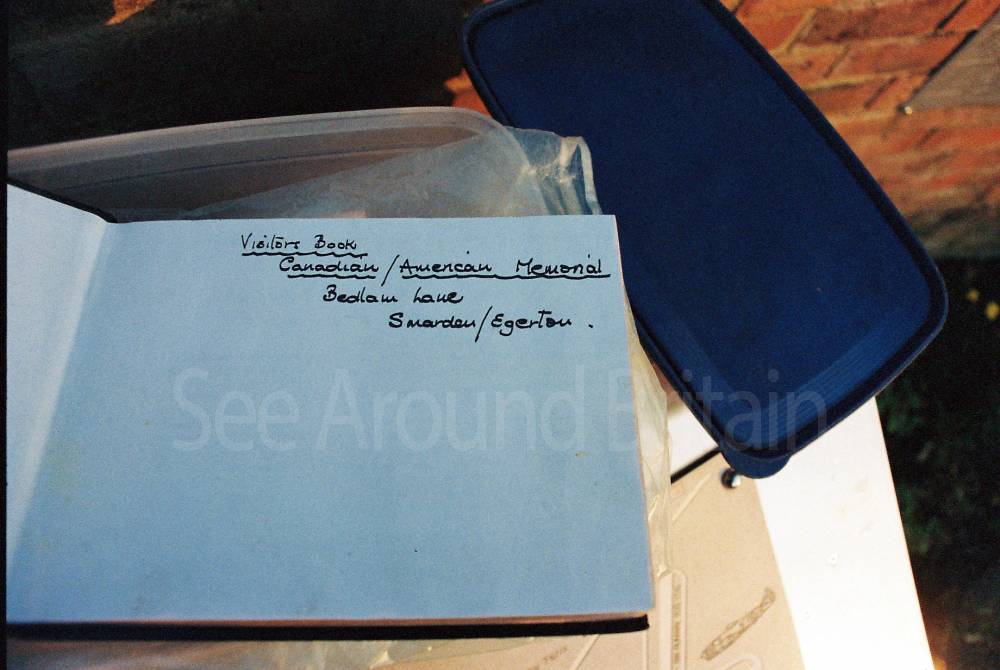 Visitors Book
Canadian/American Memorial
Bedlam Lane
Smarden/Egerton.
See Around Britain